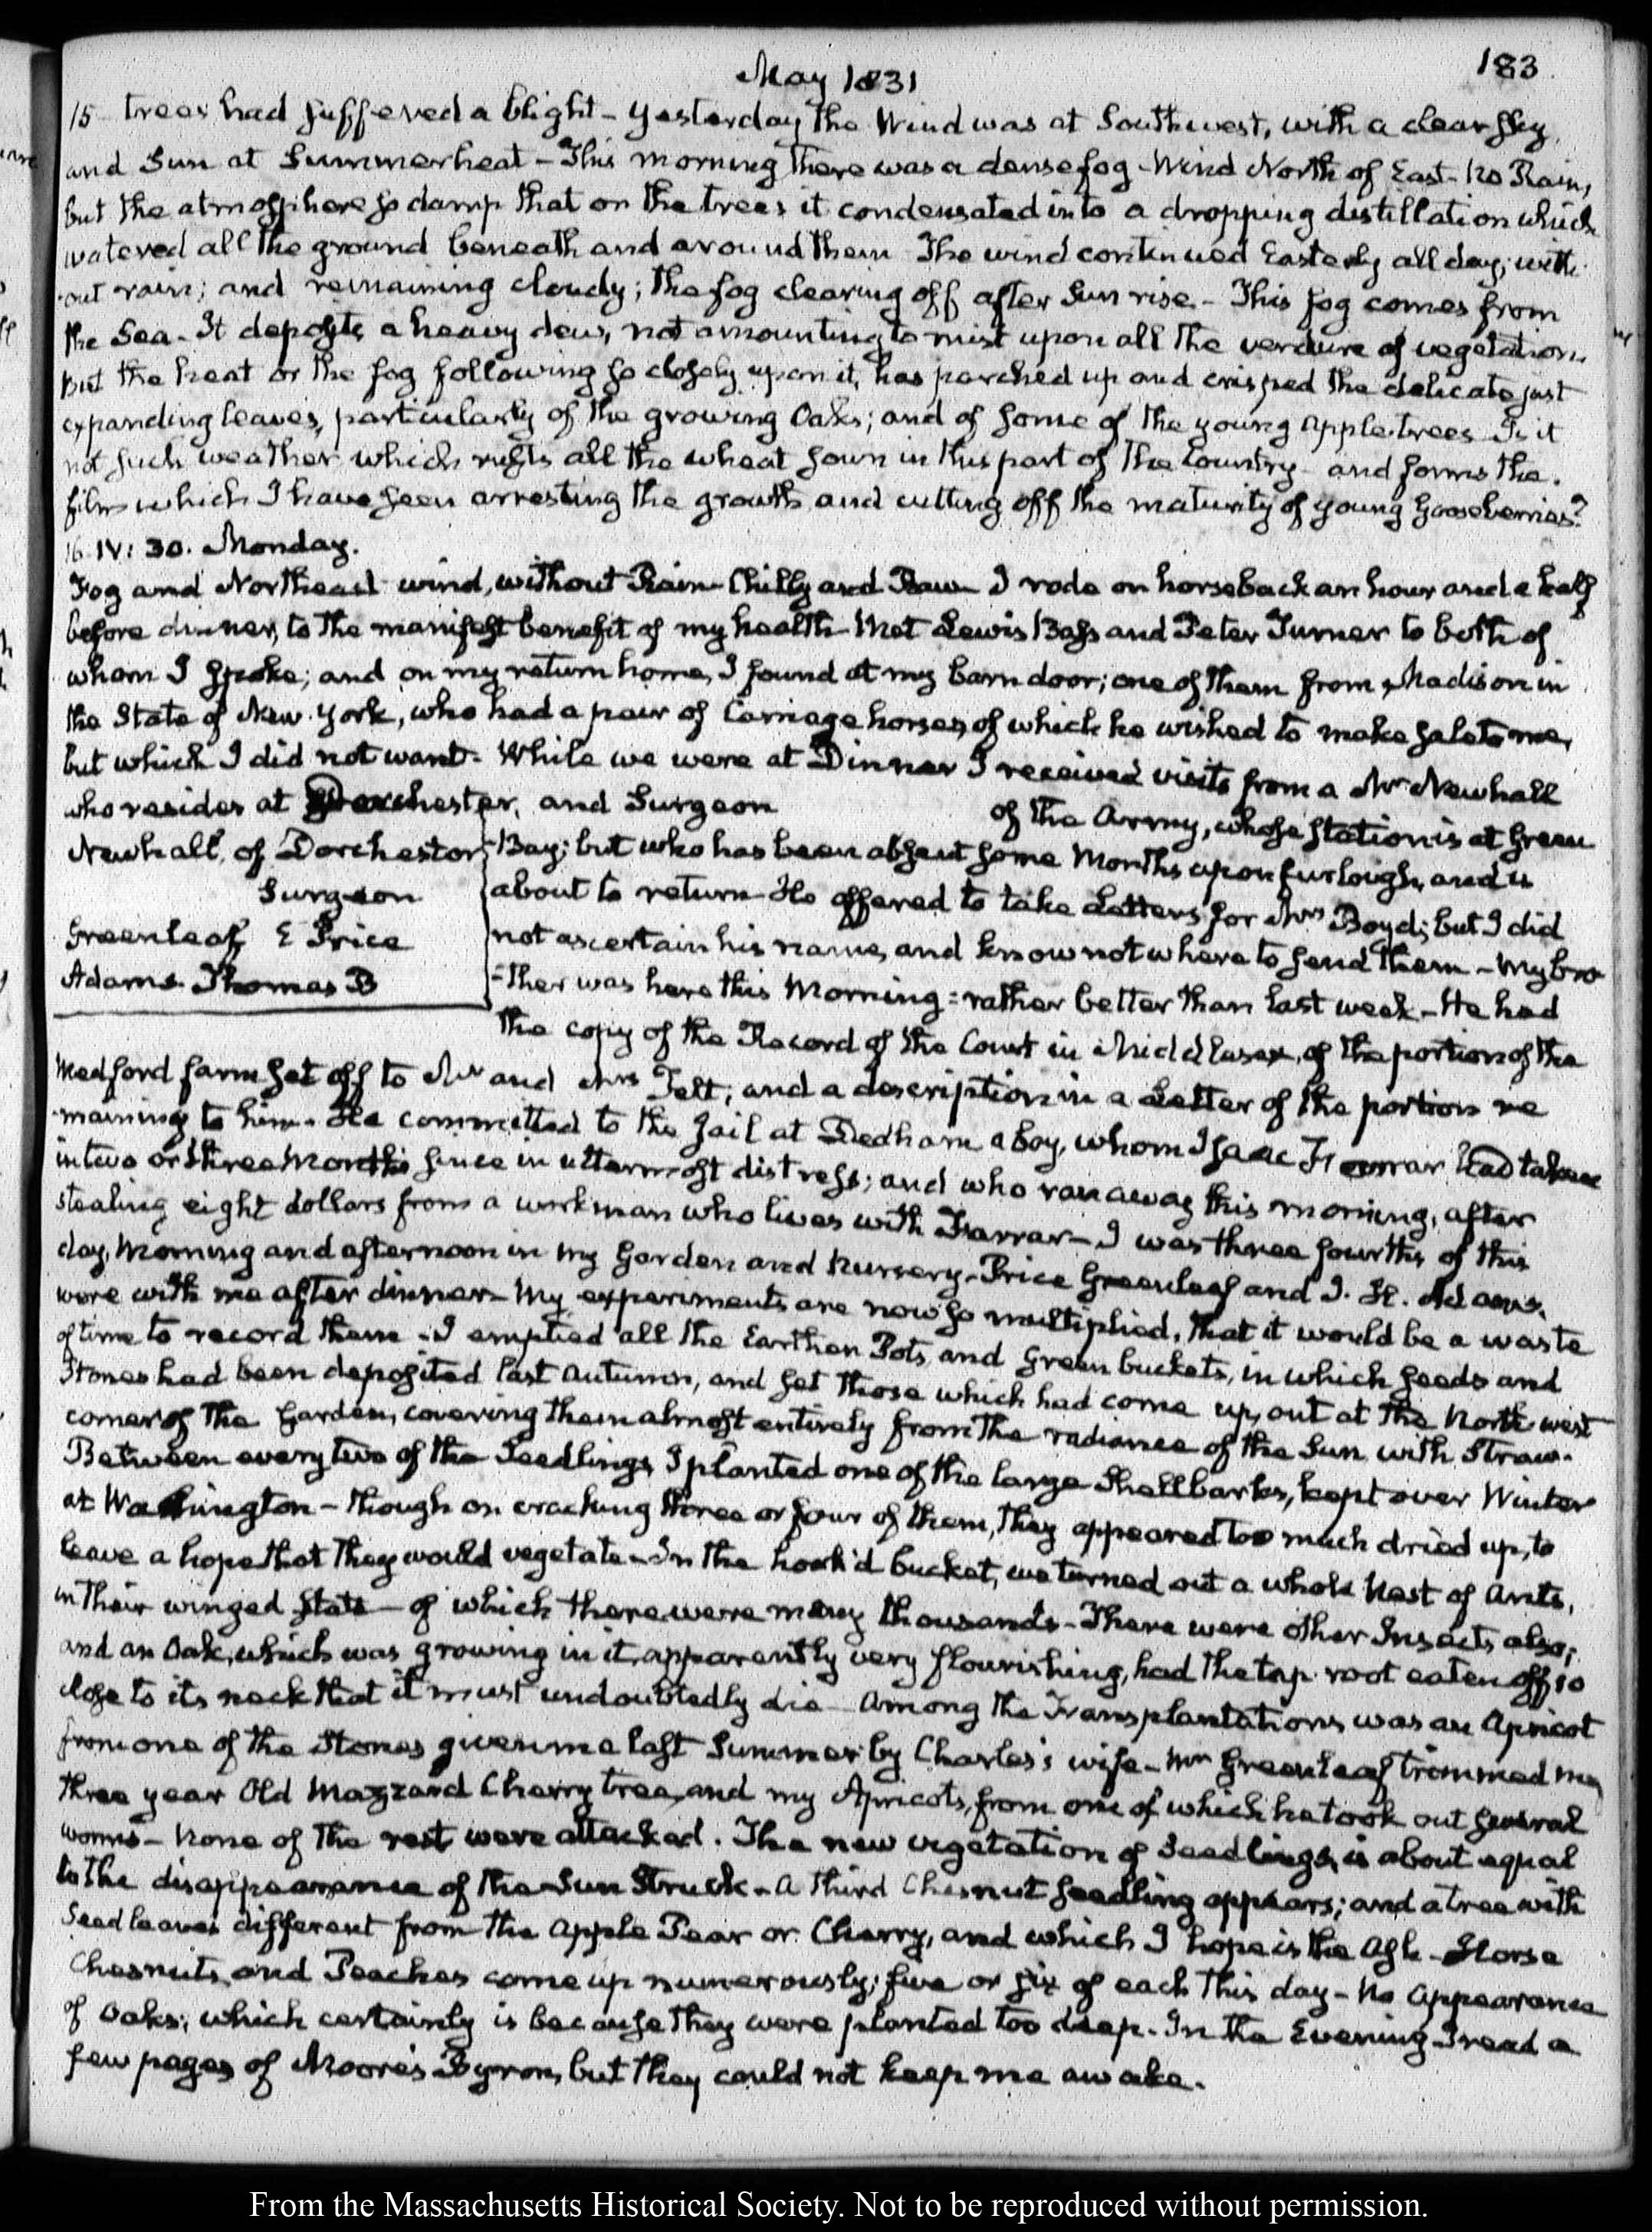 183
May 1831
15 trees had suffered a blight – Yesterday the Wind was at Southwest, with a clear sky
and Sun at Summerheat – This morning there was a dense fog – Wind North of East – No Rain,
but the atmosphere so damp that on the trees it condensated into a dropping distillation which
watered all the ground beneath and around them The wind continued Easterly all day, with-
-out rain; and remaining cloudy; the fog clearing off after Sun rise – This fog comes from
the Sea – It deposits a heavy dew, not amounting to mist upon all the verdure of vegetation.
But the heat or the fog following so closely upon it, has parched up and crisped the delicate just
expanding leaves, particularly of the growing Oaks; and of some of the young Apple trees Is it
not such weather which rusts all the wheat sown in this part of the Country – and forms the
film which I have seen arresting the growth and cutting off the maturity of young Gooseberries?
16. IV: 30. Monday.
Fog and Northeast wind, without Rain – Chilly and Raw – I rode on horseback an hour and a half
before dinner, to the manifest benefit of my health – Met Lewis Bass and Peter Turner to both of
whom I spoke; and on my return home, I found at my barn door; one of them from Madison in
the State of New-York, who had a pair of Carriage horses of which he wished to make sale to me,
but which I did not want – While we were at Dinner I received visits from a Mr Newhall
who resides at Dorchester, and Surgeon of the Army, whose station is at Green
Newhall, of Dorchester
Surgeon
Greenleaf E Price
Adams. Thomas B
Bay; but who has been absent some Months upon furlough, and is
about to return – He offered to take Letters for Mrs Boyd; but I did
not ascertain his name, and know not where to send them – My bro-
-ther was here this Morning: rather better than last week – He had
the copy of the Record of the Court in Middlesex, of the portion of the
Medford farm set off to Mr and Mrs Felt; and a description in a Letter of the portion re
-maining to him. He committed to the Jail at Dedham a boy, whom Isaac Farrar had taken
in two or three Months since in uttermost distress; and who ran away this morning, after
stealing eight dollars from a workman who lives with Farrar – I was three fourths of this
day, Morning and afternoon in my Garden and Nursery – Price Greenleaf and I. H. Adams.
were with me after dinner – My experiments are now so multiplied, that it would be a waste
of time to record them – I emptied all the Earthen Pots and green buckets, in which seeds and
Stones had been deposited last Autumn, and set those which had come up, out at the North west
corner of the Garden, covering them almost entirely from the radiance of the Sun with Straw.
Between every two of the Seedlings I planted one of the large Shellbarks, kept over Winter
at Washington – though on cracking three or four of them, they appeared too much dried up, to
leave a hope that they would vegetate – In the hook'd bucket, we turned out a whole Nest of Ants,
in their winged state – of which there were many thousands – There were other Insects also;
and an Oak, which was growing in it, apparently very flourishing, had the tap root eaten off so
close to its neck that it must undoubtedly die – Among the Transplantations was an Apricot
from one of the Stones given me last Summer by Charles's wife – Mr Greenleaf trimmed my
three year Old Mazzard Cherry tree, and my Apricots, from one of which he took out several
worms – None of the rest were attacked. The new vegetation of Seedlings, is about equal
to the disappearance of the Sun Struck – A third Chesnut seedling appears; and a tree with
Seed leaves different from the Apple Pear or Cherry, and which I hope is the Ash – Horse
Chesnuts and Peaches come up numerously; five or six of each this day – No Appearance
of Oaks; which certainly is because they were planted too deep. In the Evening I read a
few pages of Moore's Byron, but they could not keep me awake.
From the Massachusetts Historical Society. Not to be reproduced without permission.